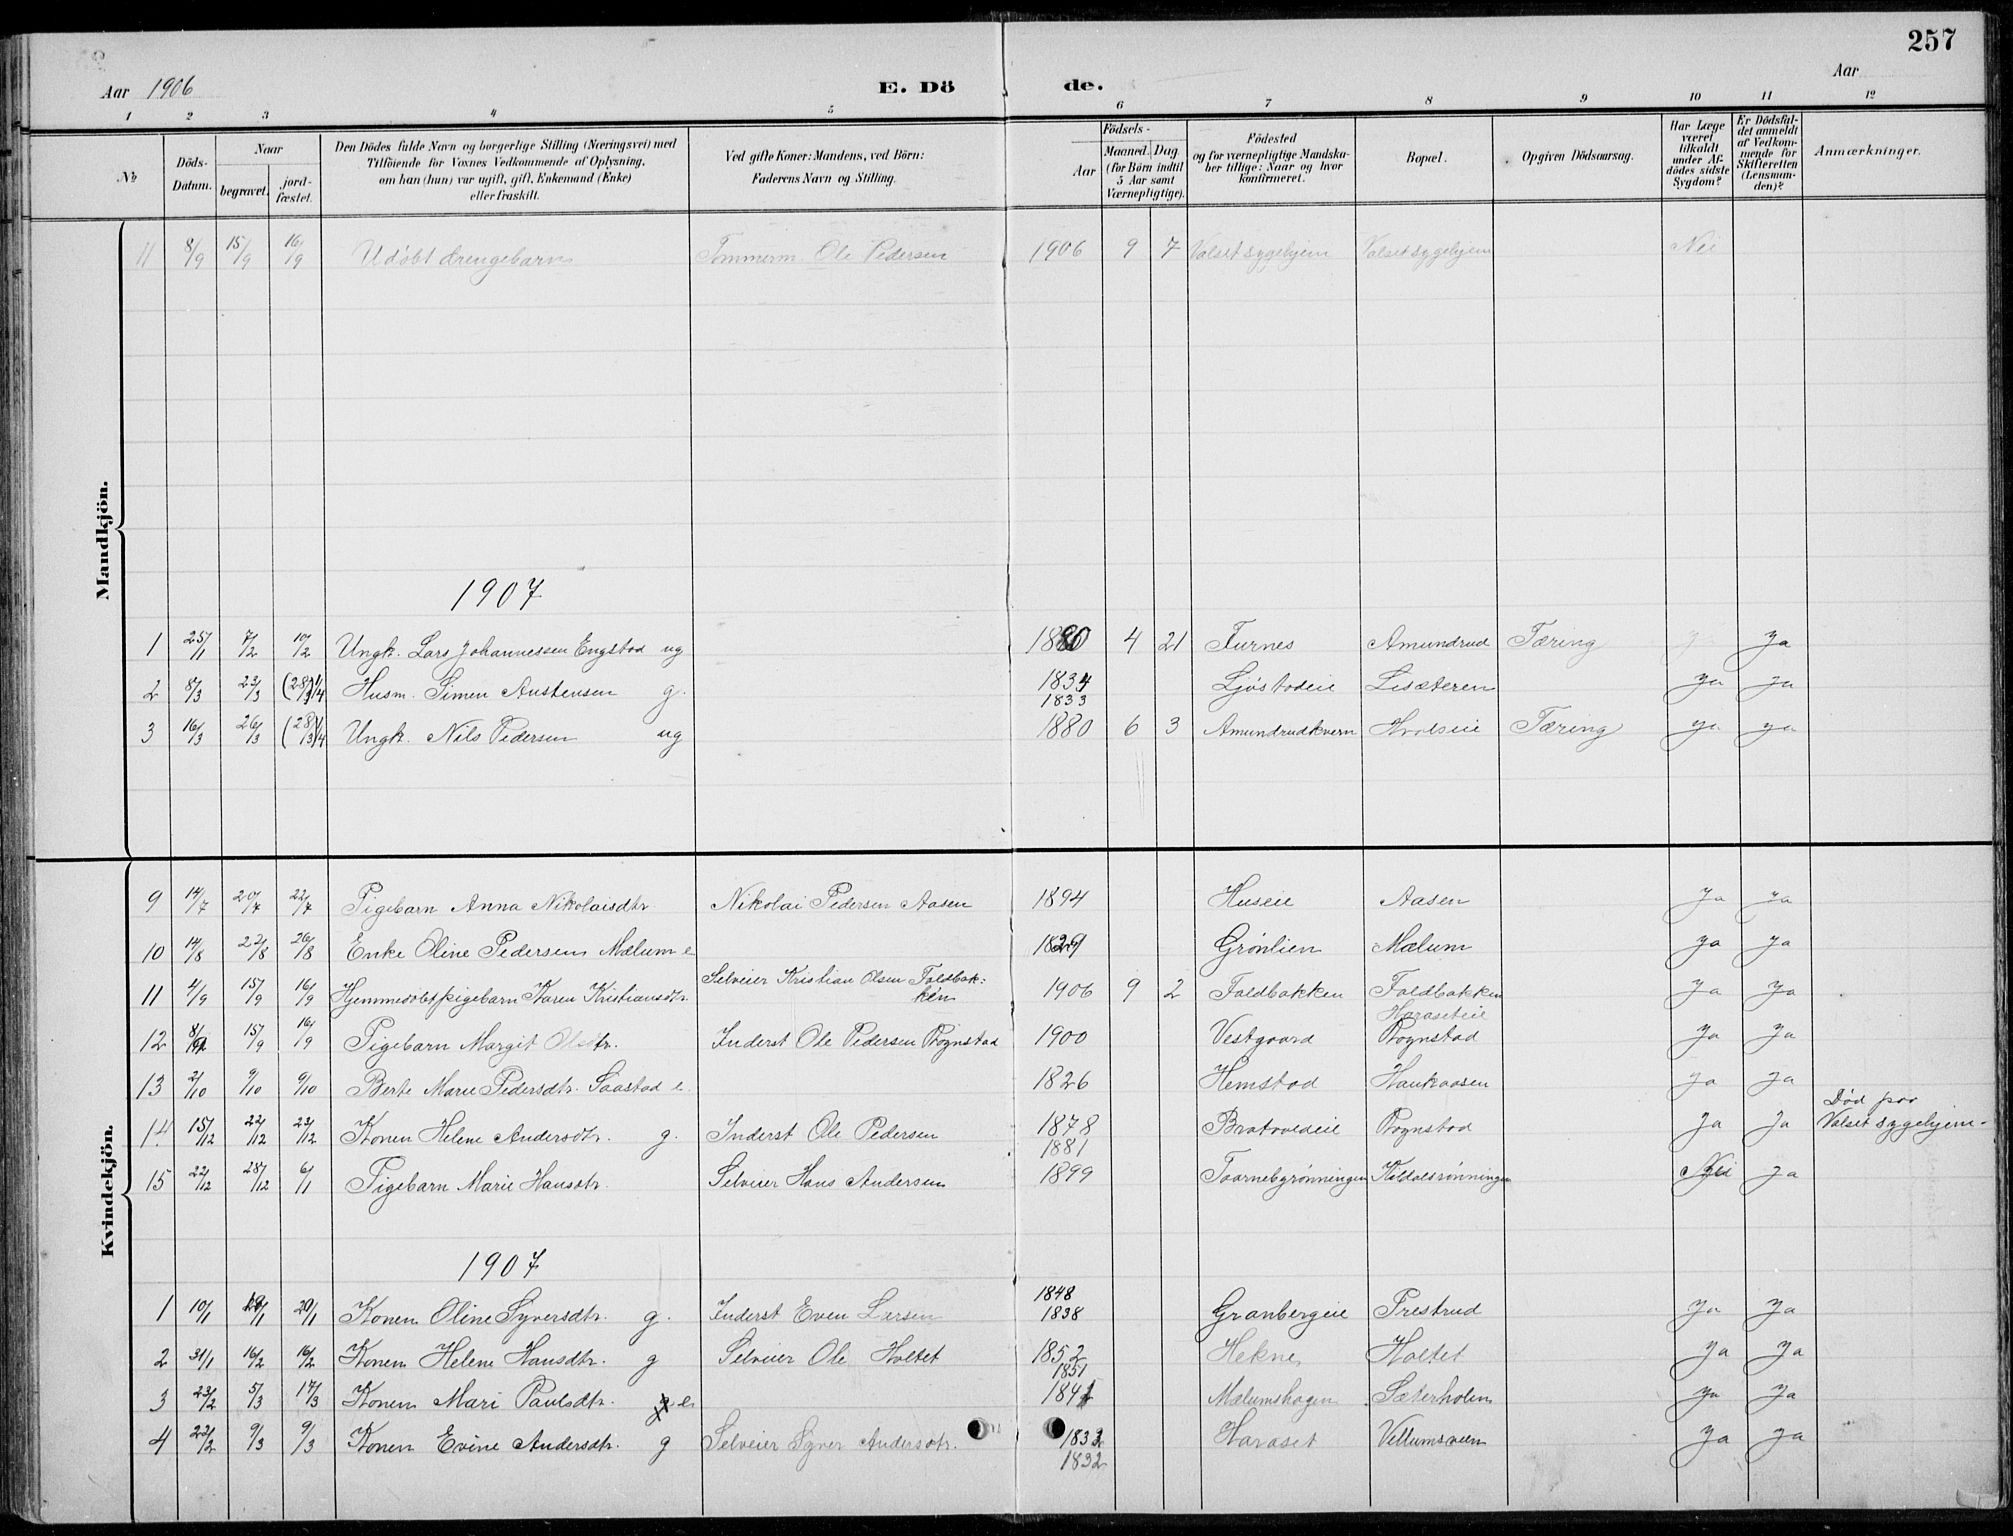 257
Aar 1906
E. Dö de.
Aar
1 2 3 4 5 6 7 8 9 10 11 12
№
Döds-Datum.
Naar
begravet.
jord-fæstet.
Den Dödes fulde Navn og borgerlige Stilling (Næringsvei) med
Tilföiende for Voxnes Vedkommende af Oplysning,
om han (hun) var ugift, gift, Enkemand (Enke)
eller fraskilt.
Ved gifte Koner: Mandens, ved Börn:
Faderens Navn og Stilling.
Födsels-
Aar
Maaned. Dag
(for Börn indtil
5 Aar samt
Værnepligtige).
Födested
og for værnepligtige Mandska-
ber tillige: Naar og hvor
konfirmeret.
Bopæl.
Opgiven Dödsaarsag.
Har Læge
været
tilkaldt
under Af-
dödes sidste
Sygdom?
Er Dödsfal-
det anmeldt
af Vedkom-
mende for
Skifteretten
(Lensman-
den)?
Anmærkninger.
Mandkjön.
11 8/9 15/9 16/9 Udöbt drengebarn Tømmerm. Ole Pedersen 1906 9 7 Valset sygehjem Valset sygehjem Nei
1907
1 25/1 7/2 10/2 Ungk. Lars Johannessen Engstad ug 1880 4 21 Furnes Amundrud Tæring Ja
2 8/3 23/3 (28/3) 1/4 Husm. Simen Austensen g. 1834 Ljøstadeie Lisæteren Ja Ja
1833
3 16/3 26/3 (28/3) 1/4 Ungk. Nils Pedersen ug 1880 6 3 Amundrudkvern Hvalseie Tæring Ja Ja
Kvindekjön.
9 14/7 20/7 22/7 Pigebarn Anna Nikolaisdtr Nikolai Pedersen Aasen 1894 Huseie Aasen Ja Ja
10 14/8 22/8 26/8 Enke Oline Pedersen Mælum e 1829 Grønlien Mælum Ja Ja
11 4/9 15/9 16/9 Hjemmedöbt pigebarn Karen Kristiansdtr. Selveier Kristian Olsen Faldbak:
ken 1906 9 2 Faldbakken Faldbakken Ja Ja
Haraseteie
12 8/9 15/9 16/9 Pigebarn Margit Olsdtr. Inderst Ole Pedersen Rognstad 1900 Vestgaard Rognstad Ja Ja
13 2/10 9/10 9/10 Berte Marie Pedersdtr. Saastad e. 1826 Hemstad Haukaasen Ja Ja
14 15/12 22/12 23/12 Konen Helene Andersdtr. g. Inderst Ole Pedersen 1878 Bratvedeie Rognstad Ja Ja Död paa
Valset sygehjem.
1881
15 22/12 28/12 6/1 Pigebarn Marie Hansdtr. Selveier Hans Andersen 1899 Taarnebgrønningen Koldalsrønningen Nei Ja
1907
1848
1 10/1 19/1 20/1 Konen Oline Syversdtr. g. Inderst Even Larsen 1838 Granbergeie Prestrud Ja Ja
2 31/1 16/2 16/2 Konen Helene Hansdtr. g Selveier Ole Holtet 1852 Hekne Holtet Ja Ja
1851
3 23/2 5/3 17/3 Konen Mari Paulsdtr. e 1841 Mælumshagen Sæterholen Ja Ja
4 22/2 9/3 9/3 Konen Evine Andersdtr. g Selveier Syver Andersdtr. 1833 Haraset Vellumsveen Ja Ja
1832